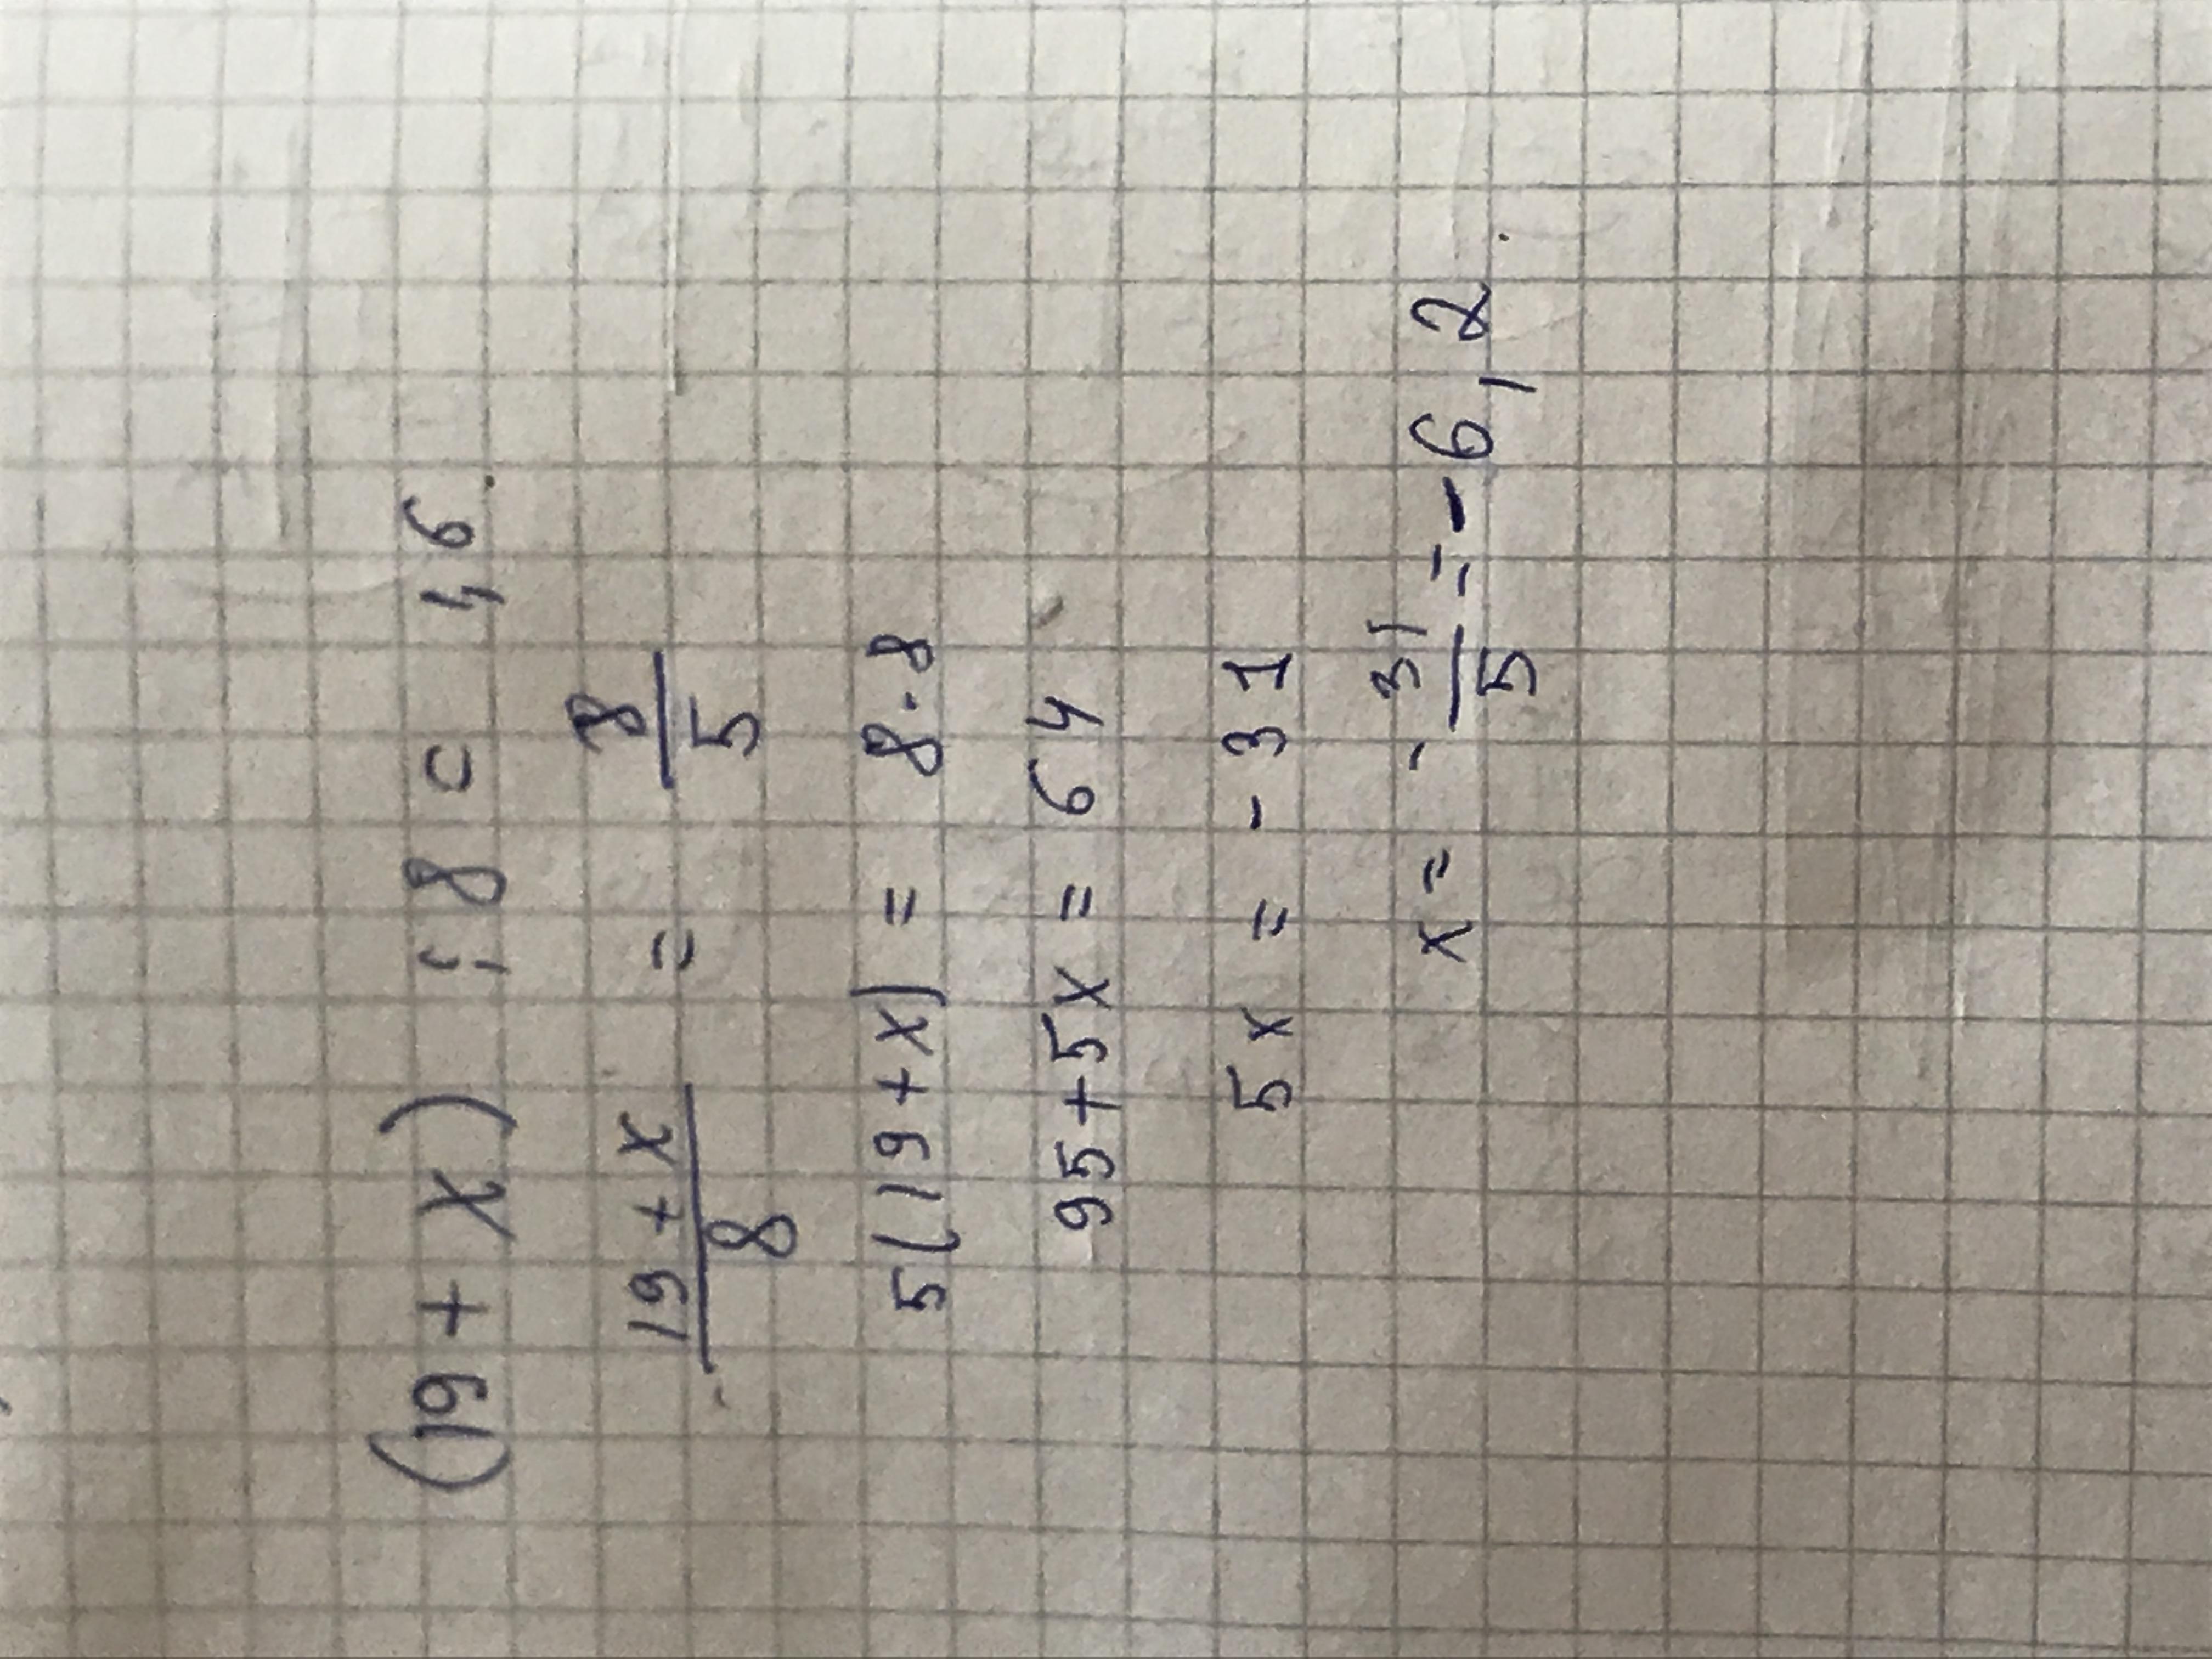 (19 + x) : 8 = 1,6
19 + x / 8 = 8 / 5
5(19 + x) = 8 · 8
95 + 5x = 64
5x = - 31
x = - 31 / 5 = - 6,2